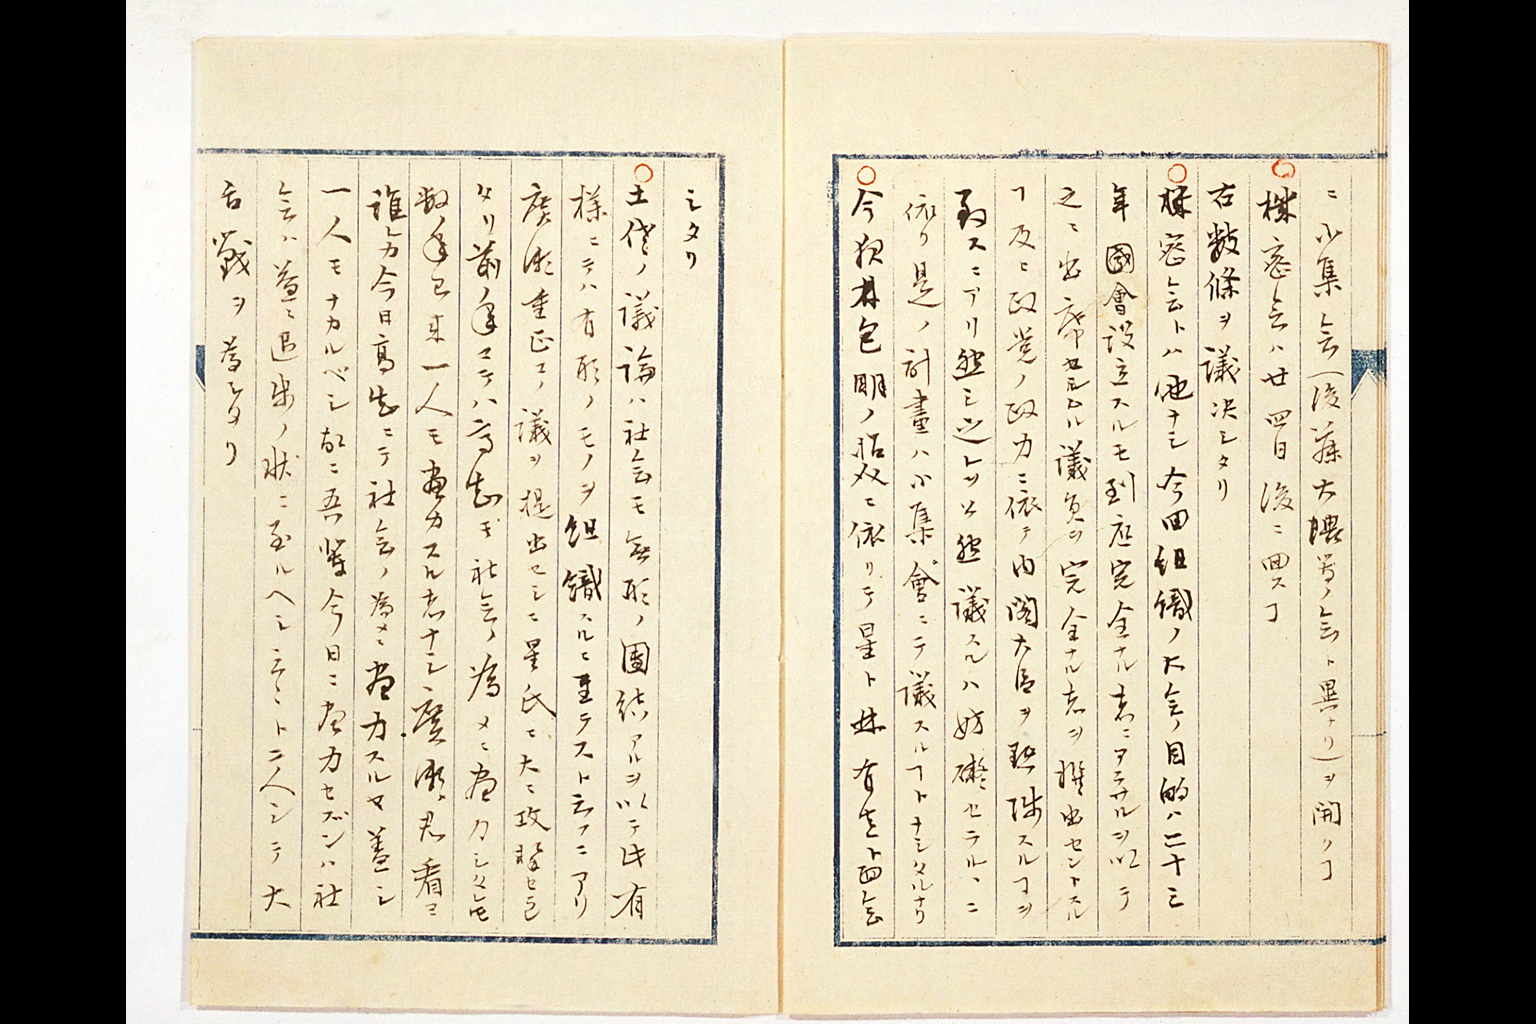 ニ小集会(後藤大隈等ノ会ト異ナリ)ヲ開クコ
秘密会ハ廿四日後ニ開クコ
右数條ヲ議決シタリ
秘密会トハ他ナシ今回組織ノ大会ノ目的ハ二十三
年國會設立スルモ到底完全ナル者ニアラサルヲ以テ
之ニ出席セシムル議員ヲ完全ナル者ヲ撰出セントスル
ヿ及ヒ政党ノ政力ニ依テ内閣大臣ヲ黜陟スルコヲ
スニアリ然シ之レヲ公然議スルハ妨礙セラルヽニ
依リ是ノ計畫ハ小集會ニテ議スルコトナシタルナリ
今夜有明ノ依リテ星ト有志ト面会
シタリ
土佐ノ議論ハ社会モ無形ノ團結アルヲ以テ此有
様ニテハ有形ノモノヲ組織スルニ至テスト云フニアリ
広瀬重正ヨリ議ヲ提出セシニ星氏ハ大ニ攻撃セラレ
タリ前年ニテハ高知モ社会ノ為メニ尽力シタレ
数年已来一人モ尽力スル者ナシ広瀬君看ヨ
誰カ今日高知ニテ社会ノ為メニ尽力スルヤ蓋シ
一人モナカルベシ故ニ吾輩今日ニ尽力セズンハ社
会ハ益々退歩ノ状ニ至ルヘシ云々ト二人シテ大
舌戰ヲ為シタリ